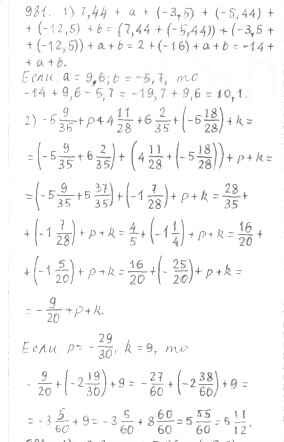 981. 1) 7,44 + a + (-3,5) + (-5,44) +
+ (-12,5) + b = (7,44 + (-5,44)) + (-3,5 +
+ (-12,5)) + a + b = 2 + (-16) + a + b = -14 +
+ a + b.
Если a = 9,6; b = -5,7, то
-14 + 9,6 - 5,7 = -19,7 + 9,6 = 10,1.
2) -5 9/35 + p + 4 11/28 + 6 2/35 + (-5 18/28) + k =
= (-5 9/35 + 6 2/35) + (4 11/28 + (-5 18/28)) + p + k =
= (-5 9/35 + 5 37/35) + (-1 7/28) + p + k = 28/35 +
+ (-1 7/28) + p + k = 4/5 + (-1 1/4) + p + k = 16/20 +
+ (-1 5/20) + p + k = 16/20 + (- 25/20) + p + k =
= - 9/20 + p + k.
Если p = - 29/30, k = 9, то
- 9/20 + (-2 19/30) + 9 = - 27/60 + (-2 38/60) + 9 =
= -3 5/60 + 9 = -3 5/60 + 8 60/60 = 5 55/60 = 5 11/12.